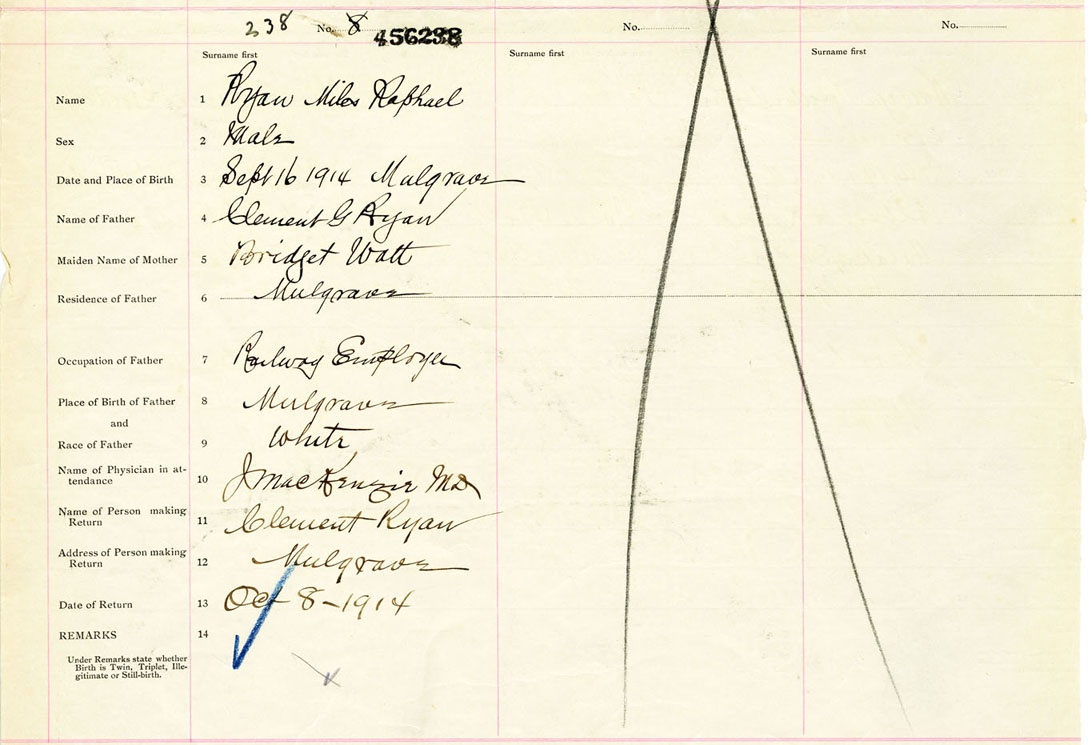 238 No. 8 456238 No. No.
Surname first Surname first Surname first
Name 1 Ryan Miles Raphael
Sex 2 Male
Date and Place of Birth 3 Sept 16 1914 Mulgrave
Name of Father 4 Clement G Ryan
Maiden Name of Mother 5 Bridget Watt
Residence of Father 6 Mulgrave
Occupation of Father 7 Railway Employee
Place of Birth of Father 8 Mulgrave
and
Race of Father 9 White
Name of Physician in at-
tendance 10 J MacKenzie MD
Name of Person making
Return 11 Clement Ryan
Address of Person making
Return 12 Mulgrave
Date of Return 13 Oct 8-1914
REMARKS 14
Under Remarks state whether
Birth is Twin, Triplet, Ille-
gitimate or Still-birth.